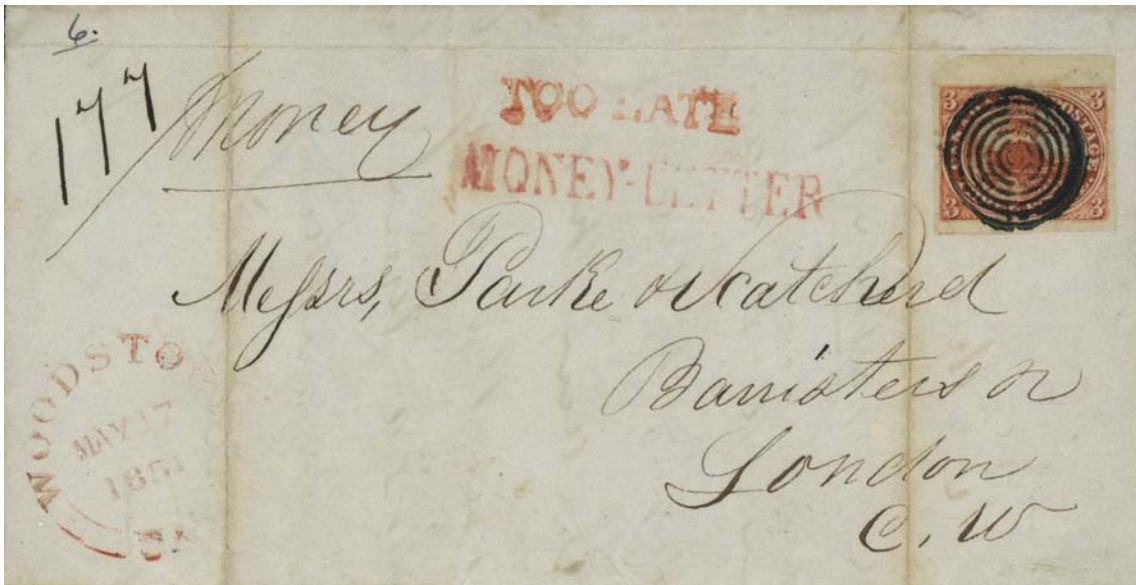 6.
177
Money
TOO LATE
MONEY-LETTER
3 POSTAGE 3
3 3
Messrs, Parke & Scatcherd
Barristers &c
London
C. W
WOODSTOC
MAY 17
1851